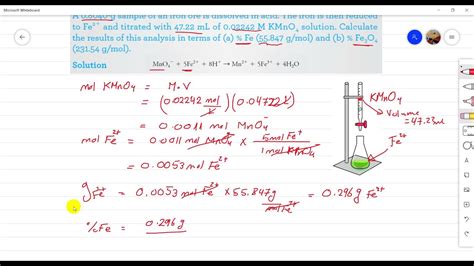 Microsoft Whiteboard
A 0.8040-g sample of an iron ore is dissolved in acid. The iron is then reduced
to Fe²⁺ and titrated with 47.22 mL of 0.02242 M KMnO₄ solution. Calculate
the results of this analysis in terms of (a) % Fe (55.847 g/mol) and (b) % Fe₃O₄
(231.54 g/mol).
Solution
MnO₄⁻ + 5Fe²⁺ + 8H⁺ → Mn²⁺ + 5Fe³⁺ + 4H₂O
mol KMnO₄ = M.V
= (0.02242 mol/L)(0.04722 L)
= 0.0011 mol MnO₄⁻
mol Fe²⁺ = 0.0011 mol MnO₄⁻ × 5mol Fe²⁺/1mol KMnO₄
= 0.0053 mol Fe²⁺
g Fe²⁺ = 0.0053 mol Fe²⁺ × 55.847g/mol Fe²⁺ = 0.296 g Fe²⁺
%Fe = 0.296 g
KMnO₄
Volume
= 47.23mL
Fe²⁺